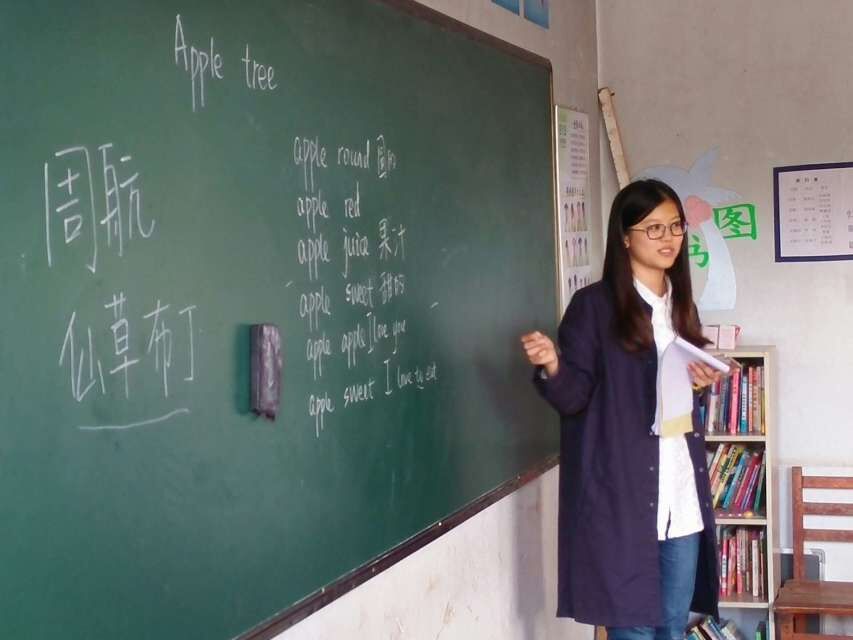 Apple tree
周航
仙草布丁
apple round 圆的
apple red
apple juice 果汁
apple sweet 甜的
apple apple I love you
apple sweet I love to eat
图
书